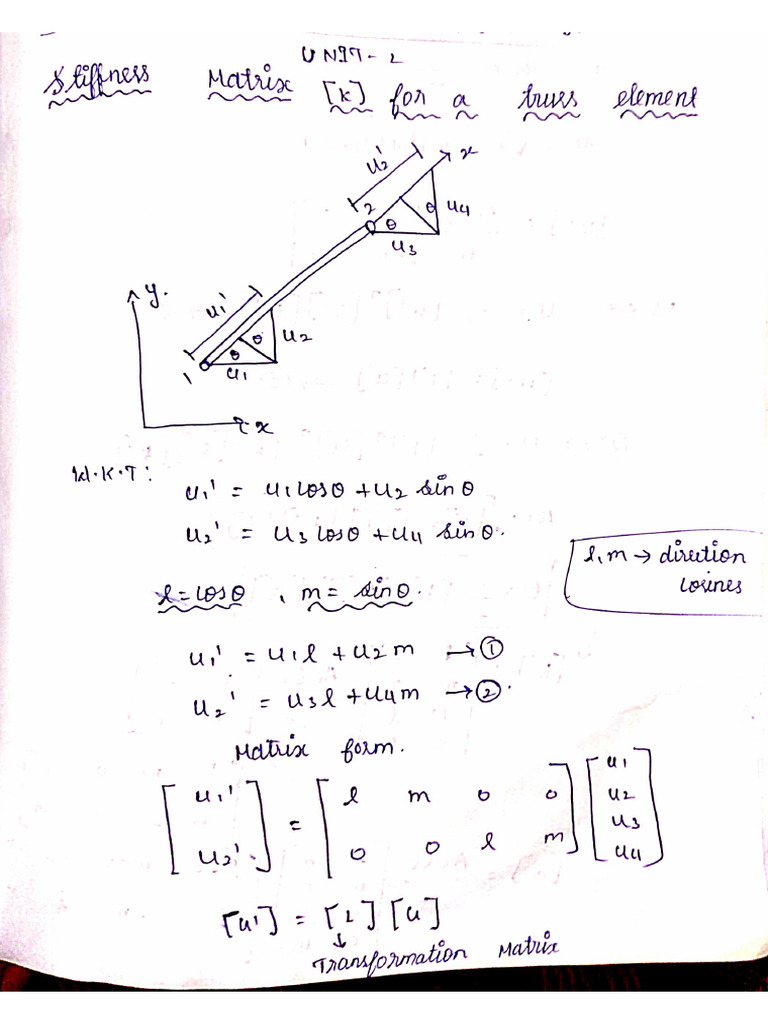 UNIT-2
Stiffness Matrix [K] for a truss element
u2'
x
2
θ
θ
u4
u3
y.
u1'
θ
θ
u2
1
u1
x
W.K.T:
u1' = u1 cosθ + u2 sinθ
u2' = u3 cosθ + u4 sinθ.
l, m → dirution
cosines
l = cosθ , m = sinθ.
u1' = u1l + u2m → ①
u2' = u3l + u4m → ②.
Matrix form.
[u1' u2'.] = [l m 0 0 0 0 l m] [u1 u2 u3 u4]
[u'] = [L] [u]
↓
Transformation Matrix